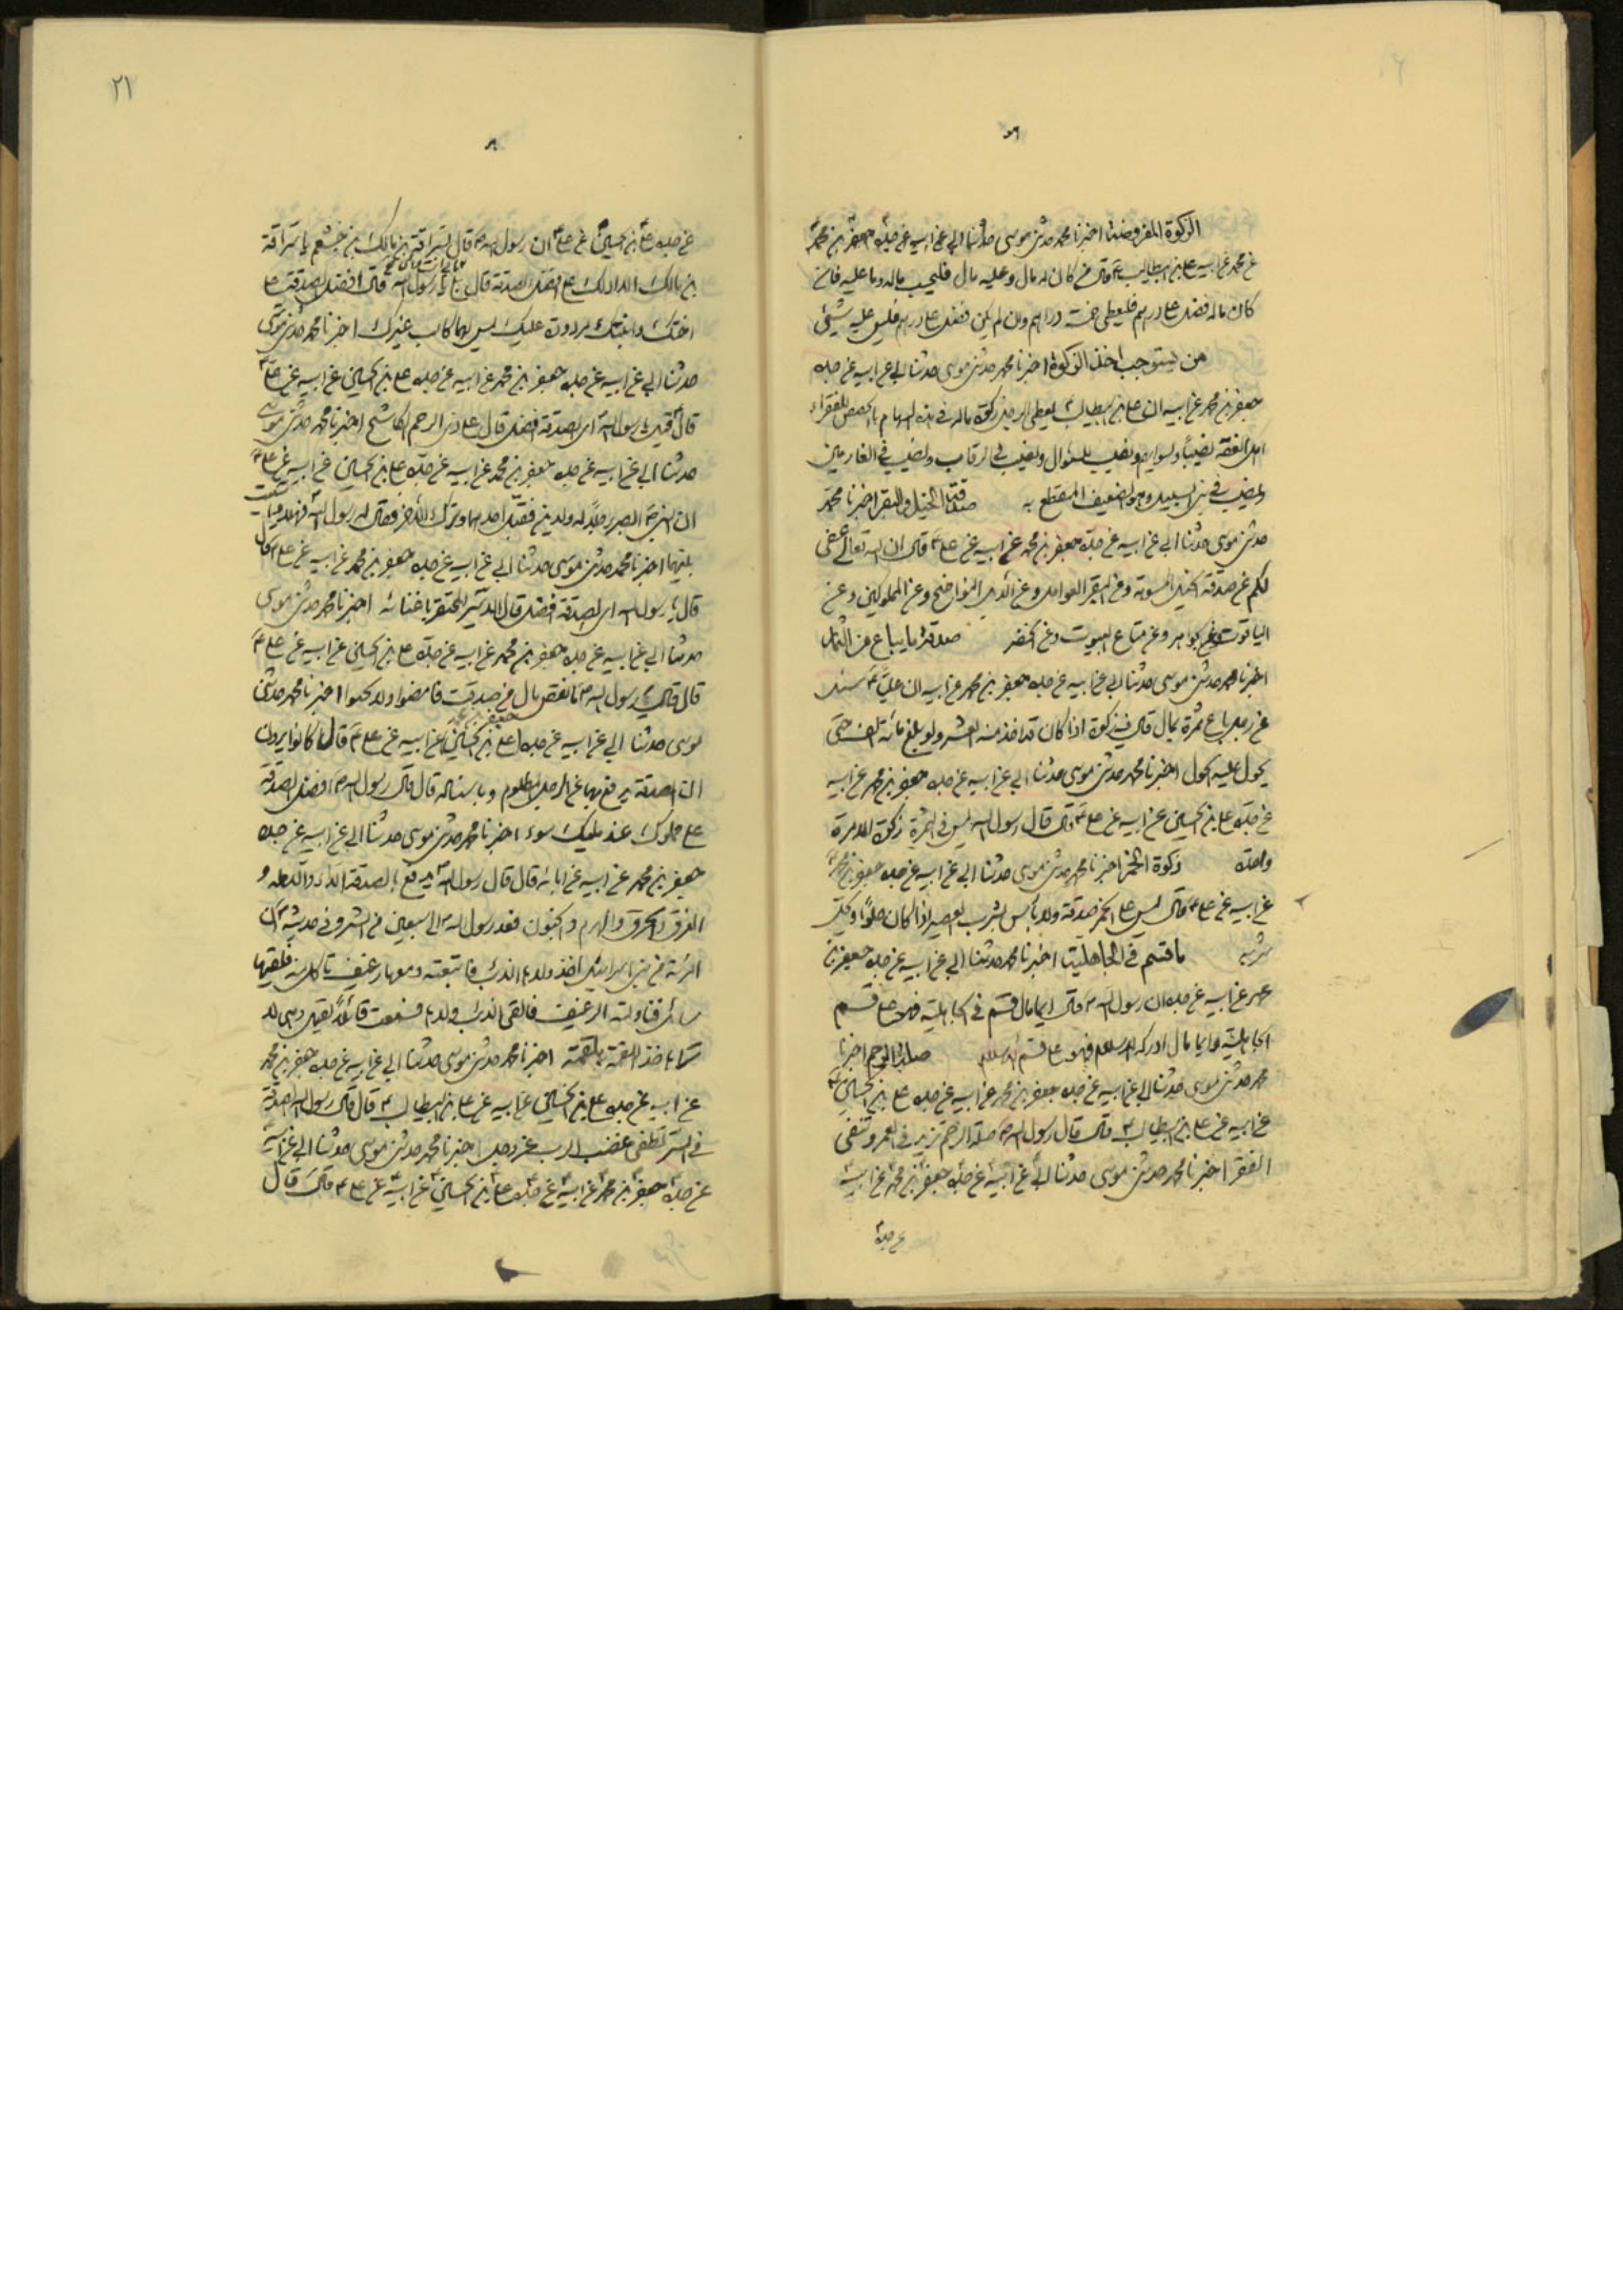 الزكوة المفروضة اخبرنا محمد حدثنى موسى حدثنا ابى عن ابيه عن جده جعفر بن محمد
عن محمد عن ابيه عن على بن ابيطالب ع قال من كان له مال وعليه مال فليحسب ماله وما عليه فان
كان ماله فضل على درهم فليعطى خمسة دراهم وان لم يكن فضل على درهم فليس عليه شيئ
من يستوجب اخذ الزكوة اخبرنا محمد حدثنى موسى حدثنا ابى عن ابيه عن جده
جعفر بن محمد عن ابيه ان على بن ابيطالب ع يعطى الرجل زكوة ماله فى هذه السهام بالحصص للفقراء
اهل العفة نصيبا ونصيب للسؤال ونصيب فى الرقاب ونصيب فى الغارمين
ونصيب فى بنى السبيل وهو الضعيف المنقطع به صدقة الخيل والبقر اخبرنا محمد
حدثنى موسى حدثنا ابى عن ابيه عن جده جعفر بن محمد عن ابيه عن على ع قال ان الله تعالى عفى
لكم عن صدقة الخيل المسومة وعن البقر العوامل وعن الابل النواضح وعن المملوكين وعن
الياقوت وعن الجواهر وعن متاع البيوت وعن الخضر صدقة ما يباع من الثمار
اخبرنا محمد حدثنى موسى حدثنا ابى عن ابيه عن جده جعفر بن محمد عن ابيه ان عليا ع سئل
عن رجل باع ثمرة بمال قال فيه زكوة اذا كان قد اخذ منه العشر ولو بلغ مائة الف حتى
يحول عليه الحول اخبرنا محمد حدثنى موسى حدثنا ابى عن ابيه عن جده جعفر بن محمد عن ابيه
عن جده على بن الحسين عن ابيه عن على ع قال قال رسول الله ليس فى الثمرة زكوة الا مرة
واحدة زكوة الخمر اخبرنا محمد حدثنى موسى حدثنا ابى عن ابيه عن جده جعفر بن محمد
عن ابيه عن على ع قال ليس على الخمر صدقة ولا بأس بشرب العصير اذا كان حلوا وكل
شربه ما قسم فى الجاهلية اخبرنا محمد حدثنا ابى عن ابيه عن جده جعفر بن
محمد عن ابيه عن جده ان رسول الله ص قال ايما مال قسم فى الجاهلية فهو على قسم
الجاهلية وايما مال ادركه الاسلام فهو على قسم الاسلام صلة الرحم اخبرنا
محمد حدثنى موسى حدثنا ابى عن ابيه عن جده جعفر بن محمد عن ابيه عن جده على بن الحسين
عن ابيه عن على بن ابيطالب ع قال قال رسول الله ص صلة الرحم تزيد فى العمر وتنفى
الفقر اخبرنا محمد حدثنى موسى حدثنا ابى عن ابيه عن جده جعفر بن محمد عن ابيه
عن جده
٢١
عن جده على بن الحسين عن على ع ان رسول الله ص قال لسراقة بن مالك بن جشعم يا سراقة
بن مالك الا ادلك على افضل الصدقة قال بلى يا رسول الله قال افضل الصدقة على
اختك وابنتك مردودة عليك ليس لهما كاسب غيرك اخبرنا محمد حدثنى موسى
حدثنا ابى عن ابيه عن جده جعفر بن محمد عن ابيه عن جده على بن الحسين عن ابيه عن على ع
قال قيل يا رسول الله اى الصدقة افضل قال على ذى الرحم الكاشح اخبرنا محمد حدثنى موسى
حدثنا ابى عن ابيه عن جده جعفر بن محمد عن ابيه عن جده على بن الحسين عن ابيه عن على ع
ان النبى ص ابصر رجلا له ولدين فقبل احدهما وترك الاخر فقال له رسول الله فهلا واسيت
بينهما اخبرنا محمد حدثنى موسى حدثنا ابى عن ابيه عن جده جعفر بن محمد عن ابيه عن على ع قال
قال يا رسول الله اى الصدقة افضل قال الاسير المخضر اخبرنا محمد حدثنى موسى
حدثنا ابى عن ابيه عن جده جعفر بن محمد عن ابيه عن جده على بن الحسين عن ابيه عن على ع
قال قال رسول الله ص ما نقص مال من صدقة فامضوا ولا تجبنوا اخبرنا محمد حدثنى
موسى حدثنا ابى عن ابيه عن جده جعفر عن على بن الحسين عن ابيه عن على ع قال كانوا يرون
ان الصدقة يدفع بها عن الرجل المظلوم وباسناده قال قال رسول الله ص افضل الصدقة
على مملوك عند مليك سوء اخبرنا محمد حدثنى موسى حدثنا ابى عن ابيه عن جده
جعفر بن محمد عن ابيه عن ابائه قال قال رسول الله ص يدفع بالصدقة الداء والدبيلة و
الغرق والحرق والهدم والجنون فعد رسول الله ص الى سبعين من الشر وفى حديثه ان
امرئة من بنى اسرائيل اخذ ولدها الذئب فاتبعته ومعها رغيف تأكل منه فلقيها
سائل فناولته الرغيف فالقى الذئب ولدها فسمعت قائلا يقول وهى لا
تراه خذ اللقمة بلقمة اخبرنا محمد حدثنى موسى حدثنا ابى عن ابيه عن جده جعفر بن محمد
عن ابيه عن جده على بن الحسين عن ابيه عن على بن ابيطالب ع قال قال رسول الله الصدقة
فى السر تطفى غضب الرب عز وجل اخبرنا محمد حدثنى موسى حدثنا ابى عن ابيه
عن جده جعفر بن محمد عن ابيه عن جده على بن الحسين عن ابيه عن على ع قال قال